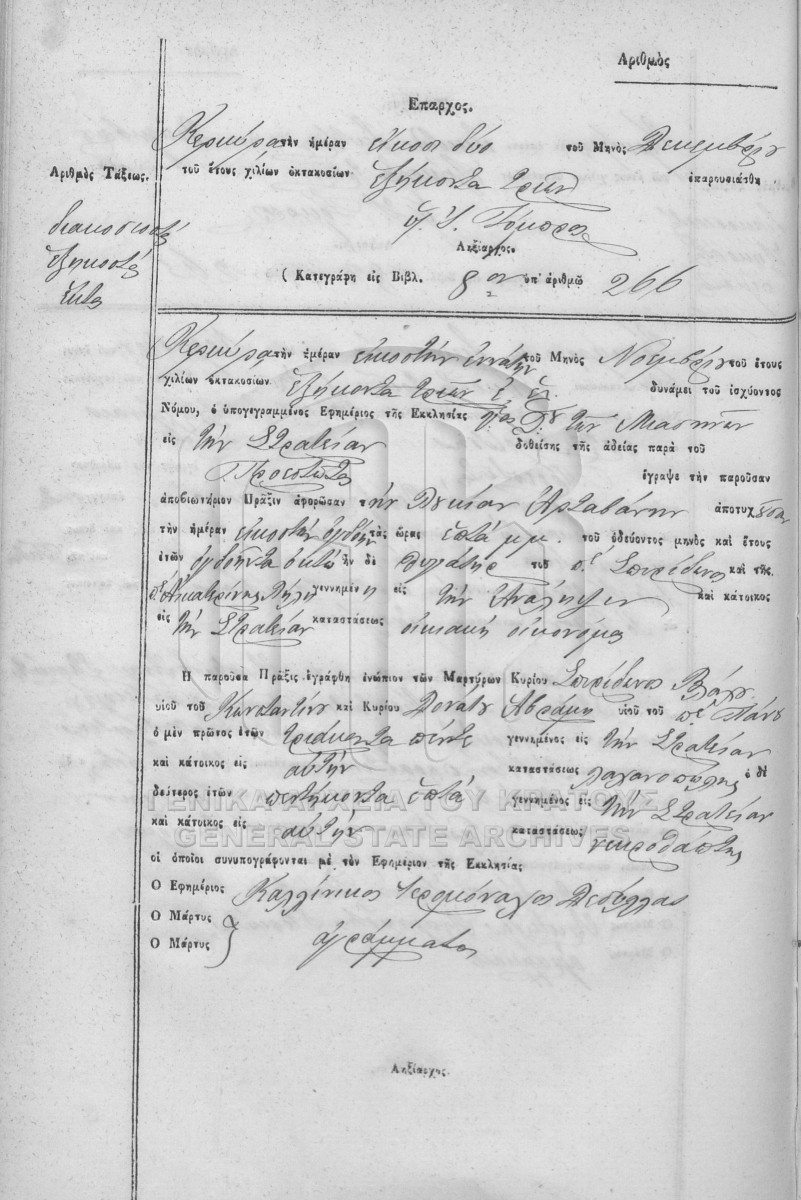 Αριθμὸς
Επαρχος.
Κερκύρα τὴν ἡμέραν εἴκοσι δύο τοῦ Μηνὸς Δεκεμβρίου
Αριθμὸς Τάξεως.
τοῦ ἔτους χιλίων ὀκτακοσίων ἑξήκοντα τριῶν ἐπαρουσιάσθη
διακοσιοστὸς
ἑξηκοστὸς
ἕκτος
Ληξίαρχος.
( Κατεγράφη εἰς Βιβλ. 8ον ὑπ' ἀριθμῶ 266
Κερκύρα τὴν ἡμέραν εἰκοστὴν ἐννάτην τοῦ Μηνὸς Νοεμβρίου τοῦ ἔτους
χιλίων ὀκτακοσίων ἑξήκοντα τριῶν δυνάμει τοῦ ἰσχύοντος
Νόμου, ὁ ὑπογεγραμμένος Εφημέριος τῆς Εκκλησίας
εἰς τὴν Στρατείαν δοθείσης τῆς ἀδείας παρὰ τοῦ
Προεστῶτος ἔγραψε τὴν παροῦσαν
ἀποβιωτήριον Πρᾶξιν ἀφορῶσαν τὴν Λουκίαν Ἀρταβάνην ἀποτυχοῦσαν
τὴν ἡμέραν εἰκοστὴν ὀγδόην τὰς ὥρας ἑπτὰ μ.μ. τοῦ ὁδεύοντος μηνὸς καὶ ἔτους
ἐτῶν ὀγδοῆντα ὀκτὼ ἦν δὲ θυγάτηρ τοῦ π Σπυρίδωνος καὶ τῆς
Αἰκατερίνης γεννημένη εἰς τὴν Ἀνάληψιν καὶ κάτοικος
εἰς τὴν Στρατείαν καταστάσεως οἰκιακὴ οἰκονόμος
Η παροῦσα Πρᾶξις ἐγράφθη ἐνώπιον τῶν Μαρτύρων Κυρίου Σπυρίδωνος
υἱοῦ τοῦ Κωνσταντίνου καὶ Κυρίου Δονάτου υἱοῦ τοῦ π Πάνου
ὁ μὲν πρῶτος ἐτῶν τριάκοντα πέντε γεννημένος εἰς τὴν Στρατείαν
καὶ κάτοικος εἰς αὐτὴν καταστάσεως λαχανοπώλης ὁ δὲ
δεύτερος ἐτῶν πεντήκοντα ἑπτὰ γεννημένος εἰς τὴν Στρατείαν
καὶ κάτοικος εἰς αὐτὴν καταστάσεως νεκροθάπτης
οἱ ὁποῖοι συνυπογράφονται μὲ τὸν Εφημέριον τῆς Εκκλητίας
Ο Εφημέριος Καλλίνικος Ἱερομόναχος Δεσύλλας
Ο Μάρτυς
Ο Μάρτυς } ἀγράμματοι
Ληξίαρχος
ΓΕΝΙΚΑ ΑΡΧΕΙΑ ΤΟΥ ΚΡΑΤΟΥΣ
GENERAL STATE ARCHIVES